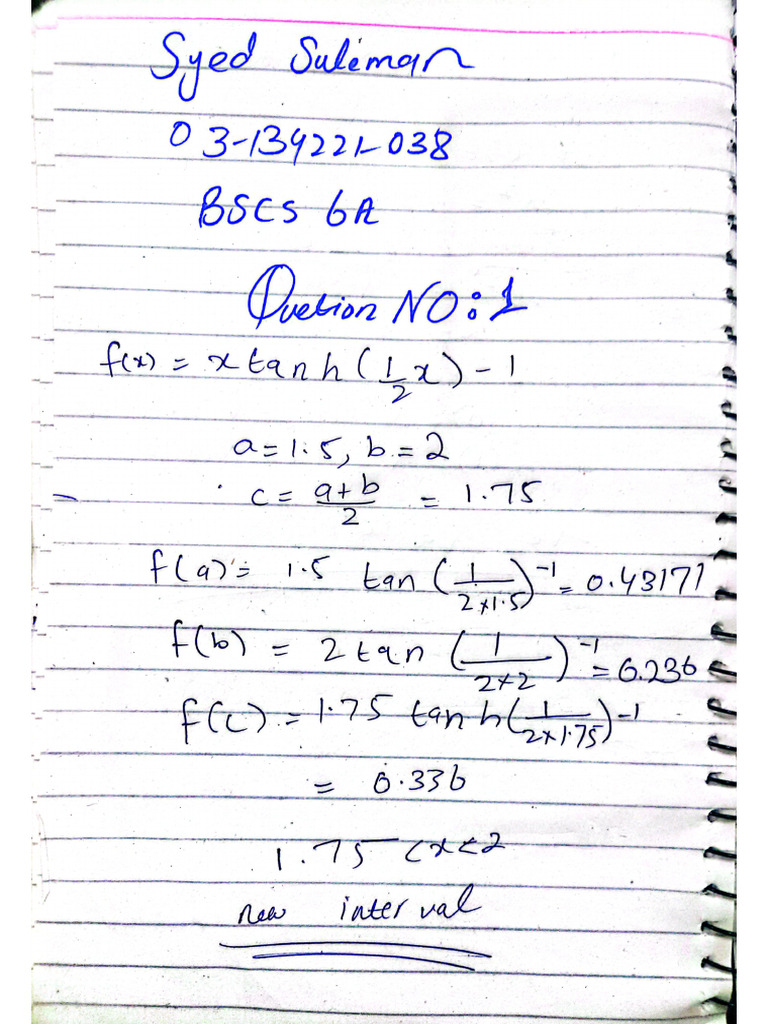 Syed Suleman
03-134221-038
BSCS 6A
Quetion NO:1
f(x) = x tanh (1/2 x) - 1
a = 1.5, b = 2
c = a+b/2 = 1.75
f(a) = 1.5 tan (1/2×1.5)-1 = 0.43171
f(b) = 2 tan (1/2×2)-1 = 0.236
f(c) = 1.75 tanh (1/2×1.75)-1
= 0.336
1.75 < x < 2
new interval